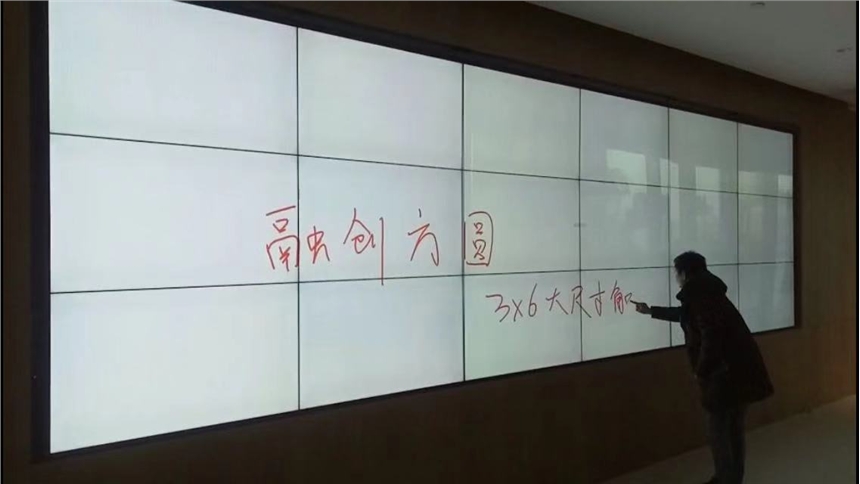 融创方圆
3x6大尺寸触